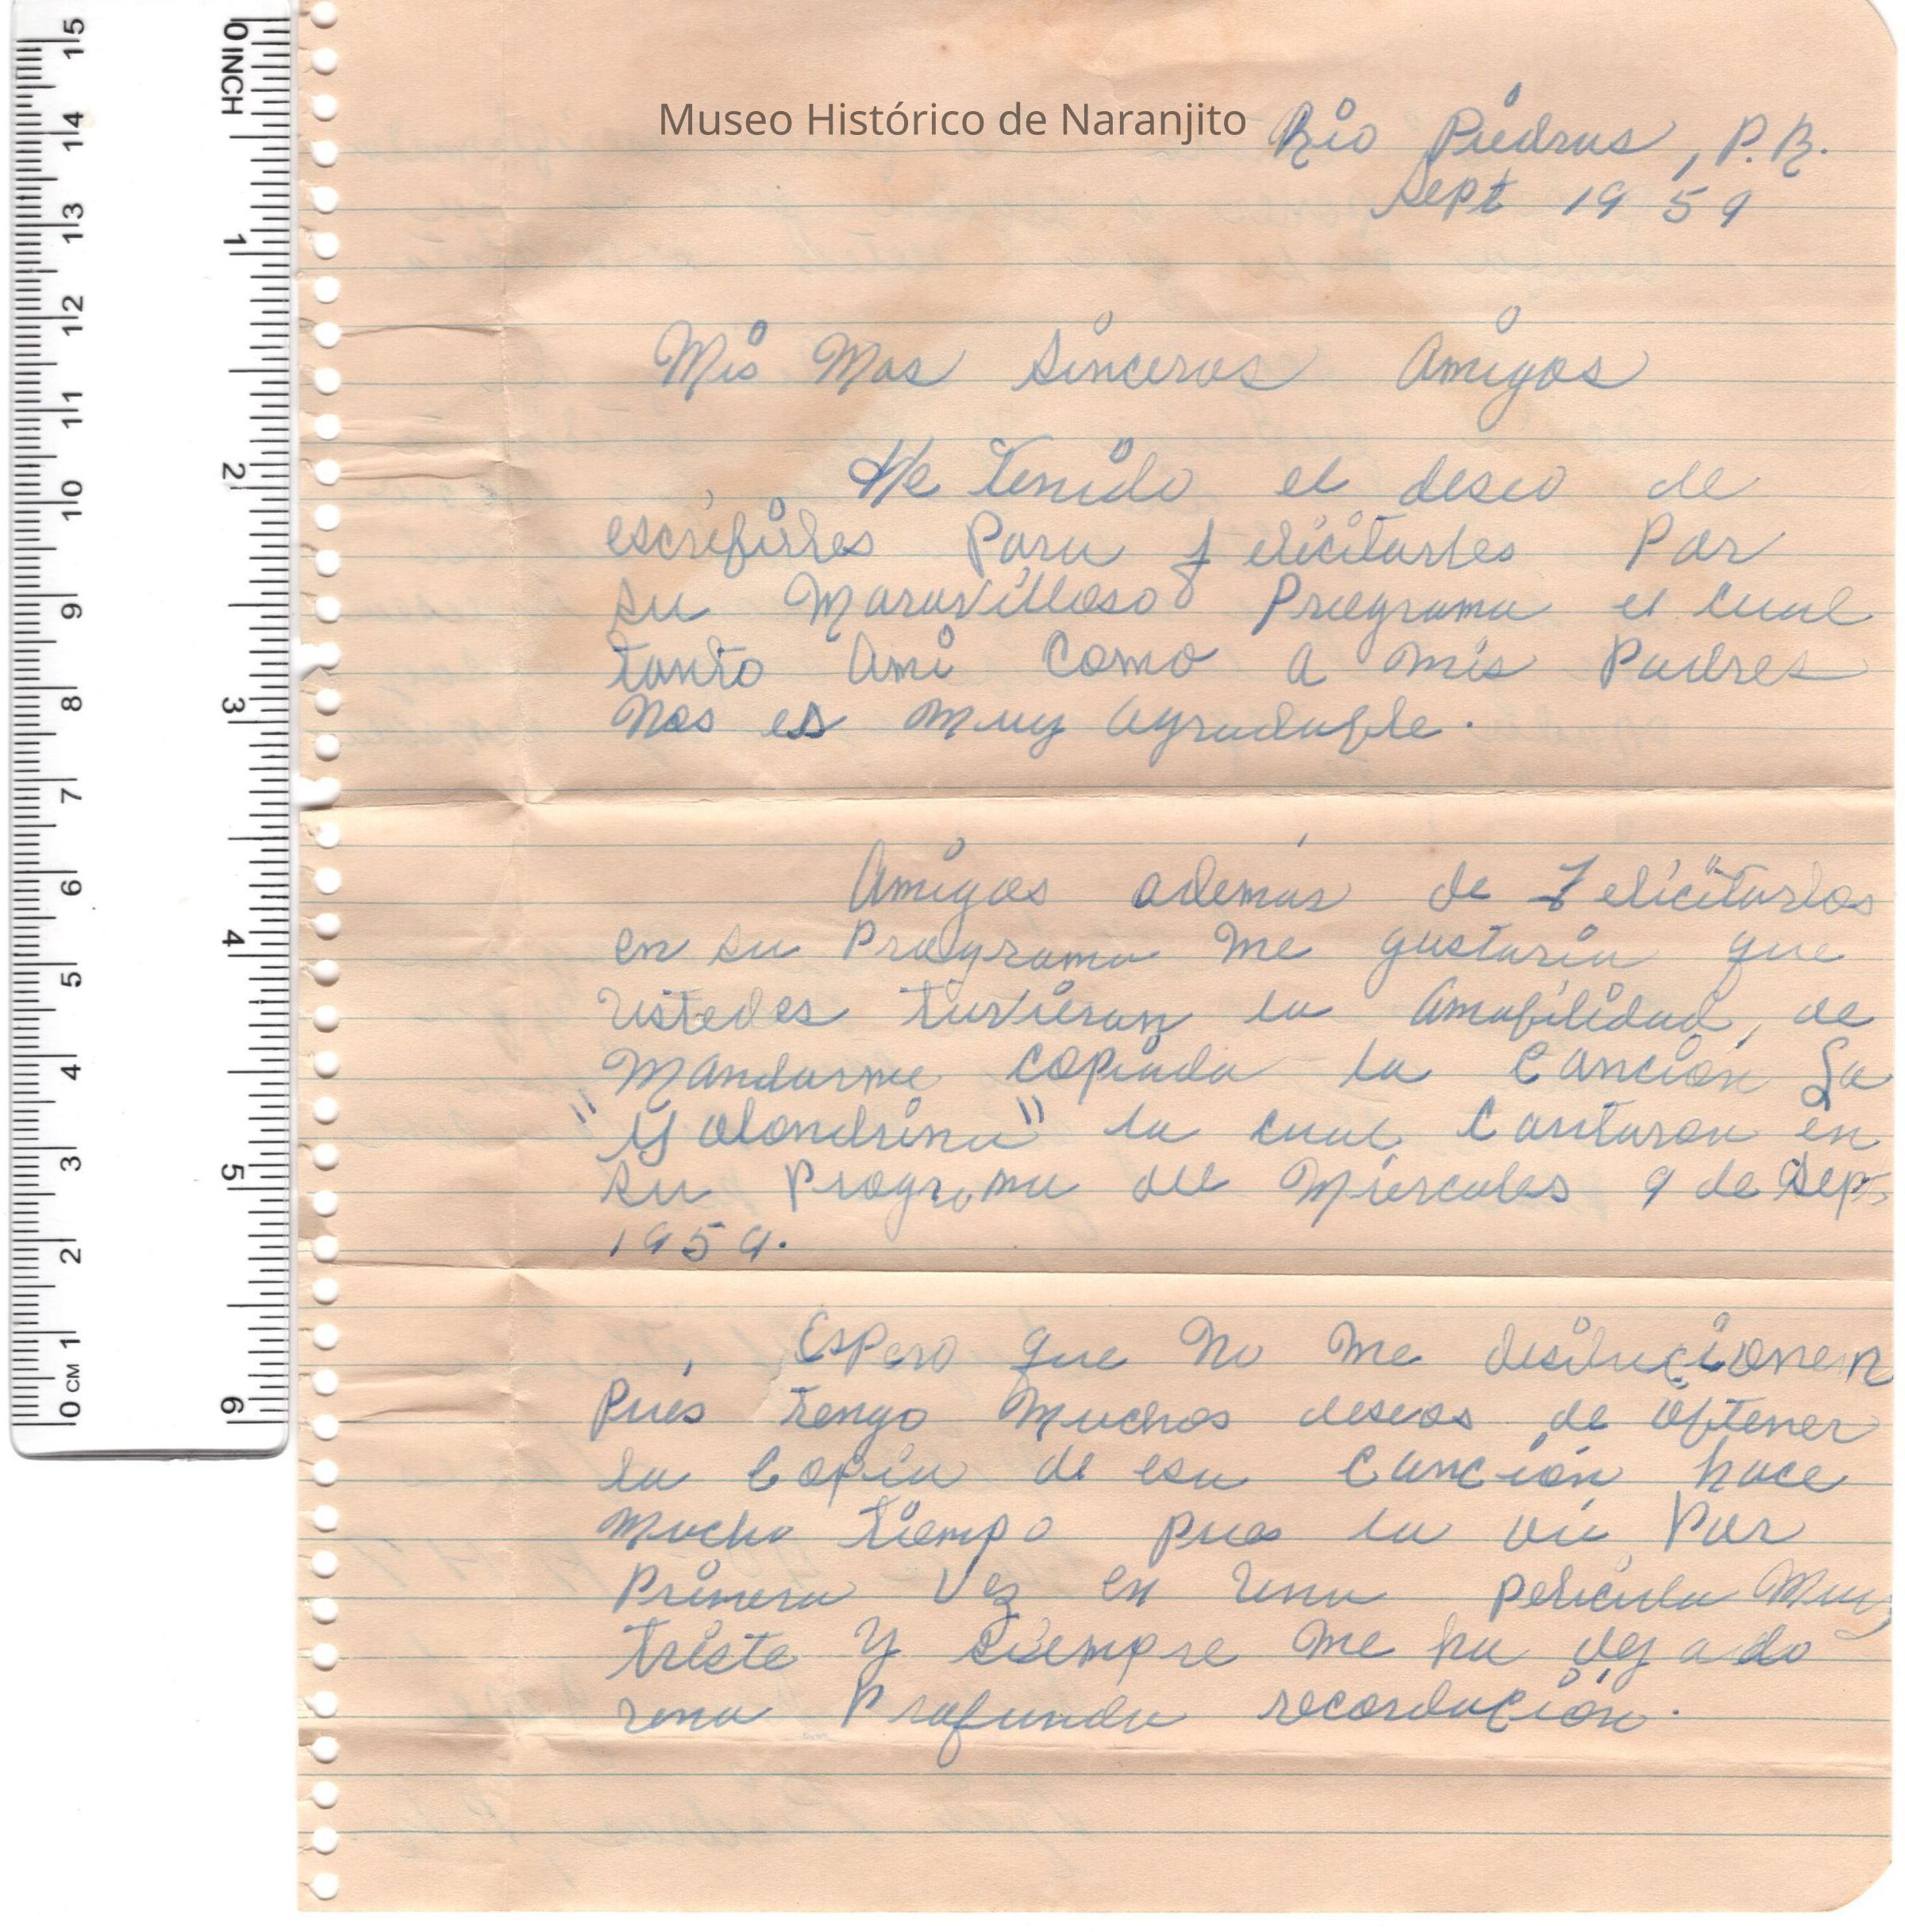 Museo Histórico de Naranjito
Rio Piedras, P.R.
Sept 1959
Mis Mas Sinceros Amigos
He tenido el deseo de
escribirles Para felicitarles Por
su Maravilloso Programa el cual
tanto Ami Como a mis Padres
Nos es muy agradable.
Amigos además de Felicitarlos
en su Programa Me gustaria que
ustedes tuvieran la Amabilidad, de
Mandarme Copiada la Canción La
"Golondrina" la cual Cantaron en
su Programa del Miercoles 9 de Sept.
1959.
Espero que No Me desilucionen
Pues tengo Muchos deseos de obtener
la Copia de esa Canción hace
Mucho tiempo pues la oí Por
Primera Vez en una pelicula Muy
triste y siempre Me ha dejado
una Profunda recordación.
0 INCH
1
2
3
4
5
6
15
14
13
12
11
10
9
8
7
6
5
4
3
2
1
0 CM